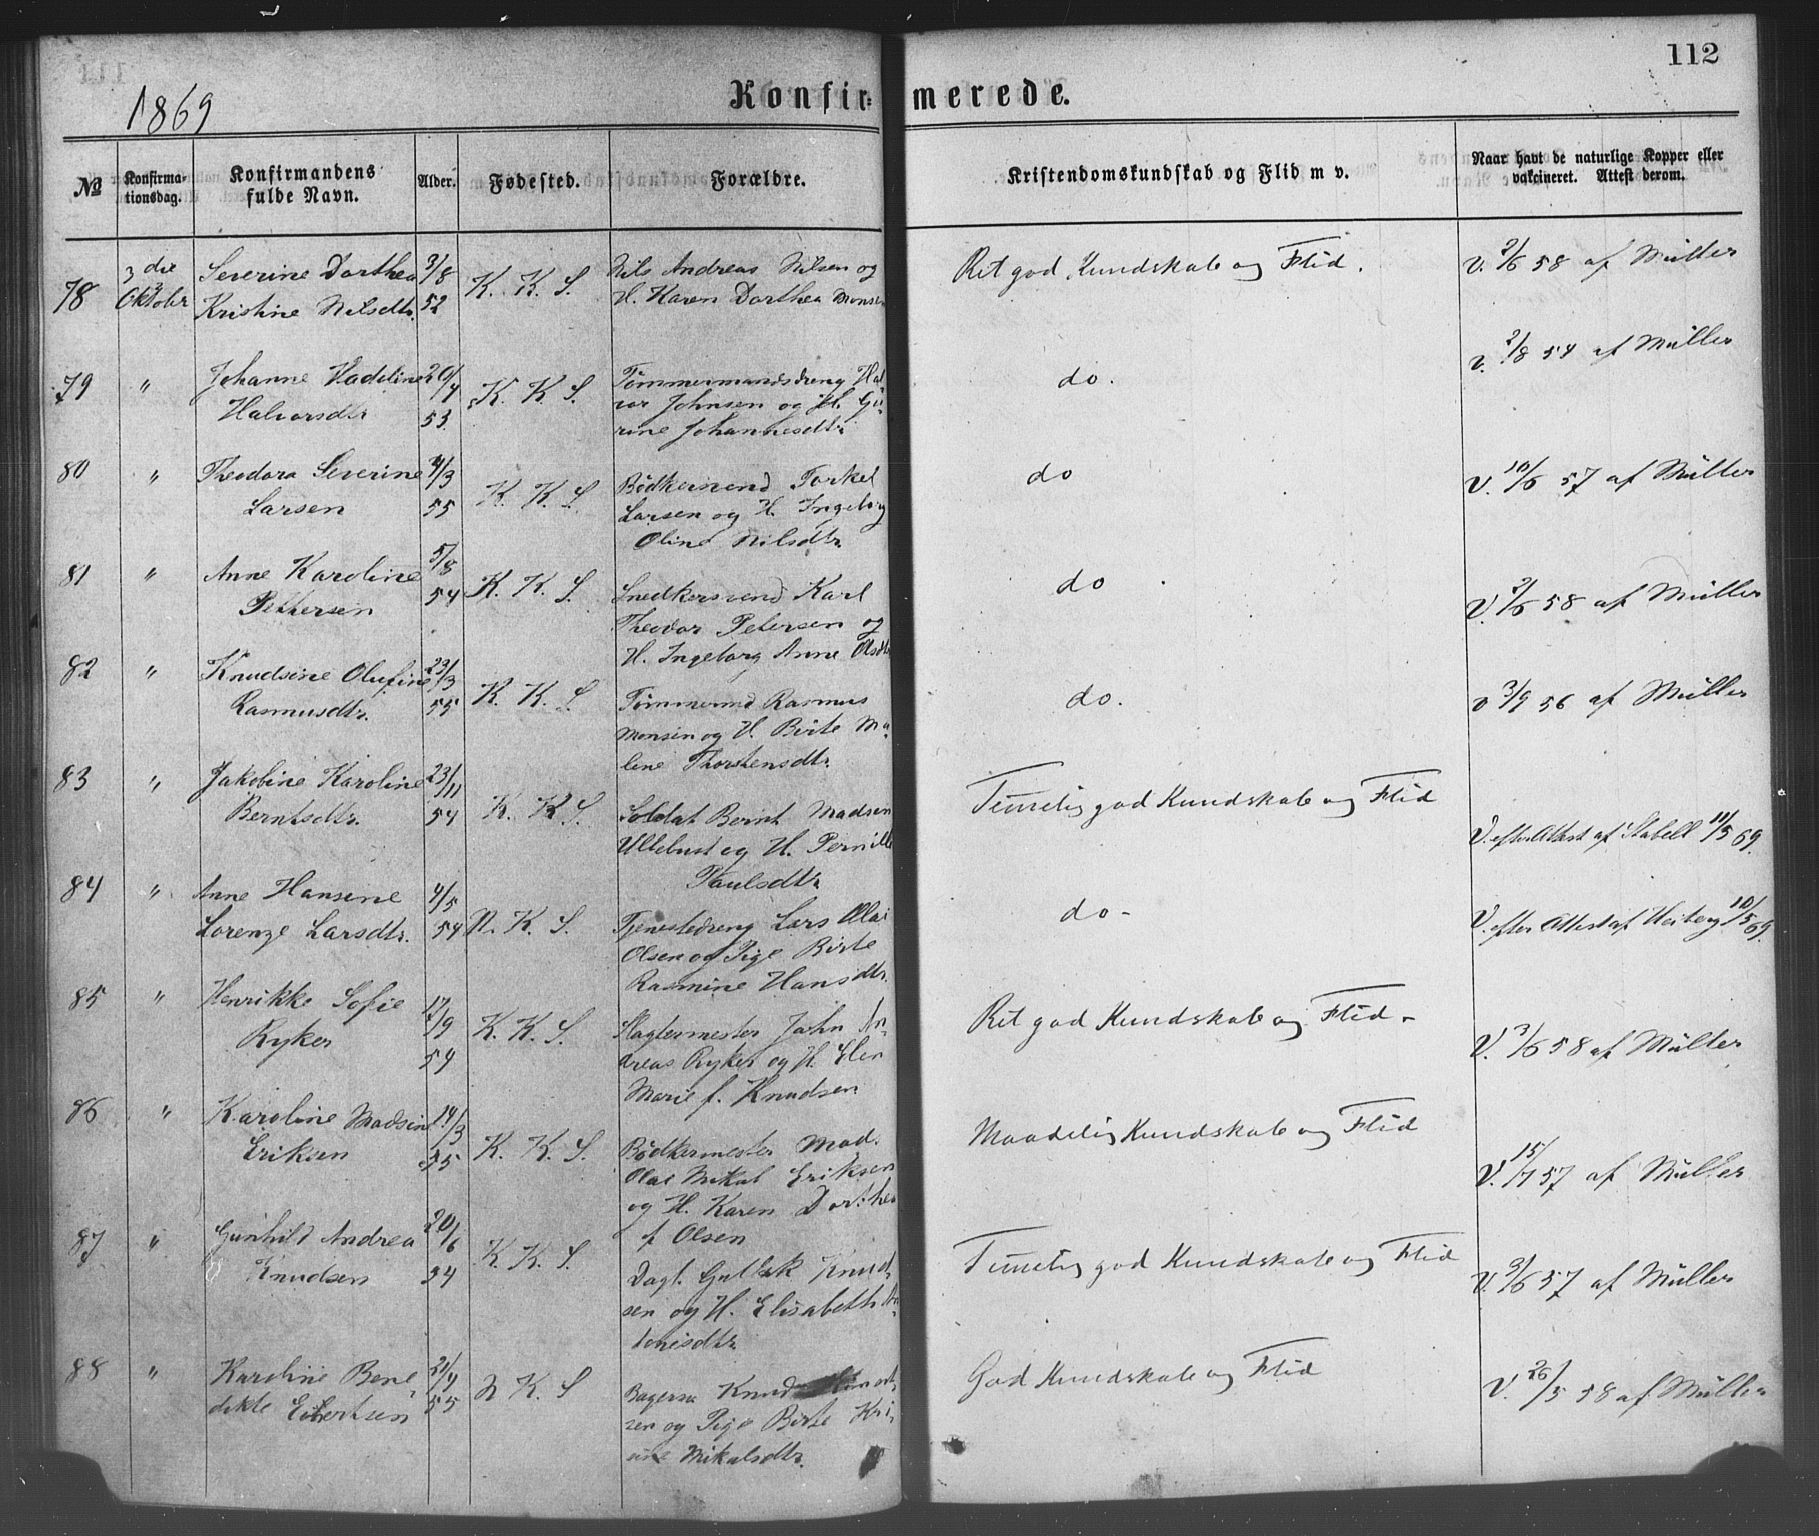 112
1869
Konfir-merede.
№
Konfirma-
tionsdag.
Konfirmandens
fulde Navn.
Alder.
Fødested.
Forældre.
Kristendomskundskab og Flid m v.
Naar havt de naturlige Kopper eller
vakcineret. Attest derom.
78 3die Oktober Severine Dorthea 3/8 K. K. S. Nils Andreas Nilsen og Ret god Kundskab og Flid. V. 2/6 58 af Müller
Kristine Nilsdtr. 52 H. Karen Dorthea Monsen
79 " Johanne Hadeline 20/4 K. K. S. Tømmermandsdreng Hal- do. V. 2/8 54 af Müller
Halvorsdtr 53 vor Johnsen og H. Gu-
rine Johannesdtr
80 " Theodora Severine 4/3 K. K. S. Bødkersvend Torkel do V. 10/6 57 af Müller
Larsen 55 Larsen og H. Ingeborg
Oline Nilsdtr
81 " Anne Karoline 5/8 K. K. S. Snedkersvend Karl do V. 2/6 58 af Müller
Pettersen 54 Theodor Petersen og
H. Ingeborg Anne Olsdtr
82 " Knudsine Olufine 23/3 K. K. S. Tømmermd Rasmus do. V 3/9 56 af Müller
Rasmusdtr. 55 Monsen og H. Birte Ma-
line Thorstensdtr
83 " Jakobine Karoline 23/11 K. K. S. Soldat Bernt Madsen Temelig god Kundskab og Flid V. efter Attest af Stabell 11/5 69.
Berntsdtr. 54 Ullebust og H. Pernille
Paulsdtr
84 " Anne Hansine 4/5 N. K. S. Tjenestedreng Lars Olai do- V. efter Attest af Heiberg 10/5 69.
Lorenze Larsdtr. 54 Olsen og Pige Birte
Rasmine Hansdtr.
85 " Henrikke Sofie 17/9 K. K. S. Slagtermester John An- Ret god Kundskab og Flid- V. 3/6 58 af Müller
Ryker 54 dreas Ryker og H. Elen
Marie f. Knudsen
86 " Karoline Madsine 14/3 K. K. S. Bødkermester Mad. Maadelig Kundskab og Flid V. 15/7 57 af Müller
Eriksen 55 Olai Mikal Eriksen
og H. Karen Dorthea
f Olsen
87 " Gunhild Andrea 20/6 K. K. S. Dagl. Gullak Knud- Temelig god Kundskab og Flid V. 9/6 57 af Müller
Knudsen 54 sen og H. Elisabeth An-
tonisdtr
88 " Karoline Bene- 21/9 N K. S Bagersv Knud God Kundskab og Flid V. 26/5 58 af Müller
dikte Eilertsen 55 sen og Pige Birte Kri-
Mikalsdtr.